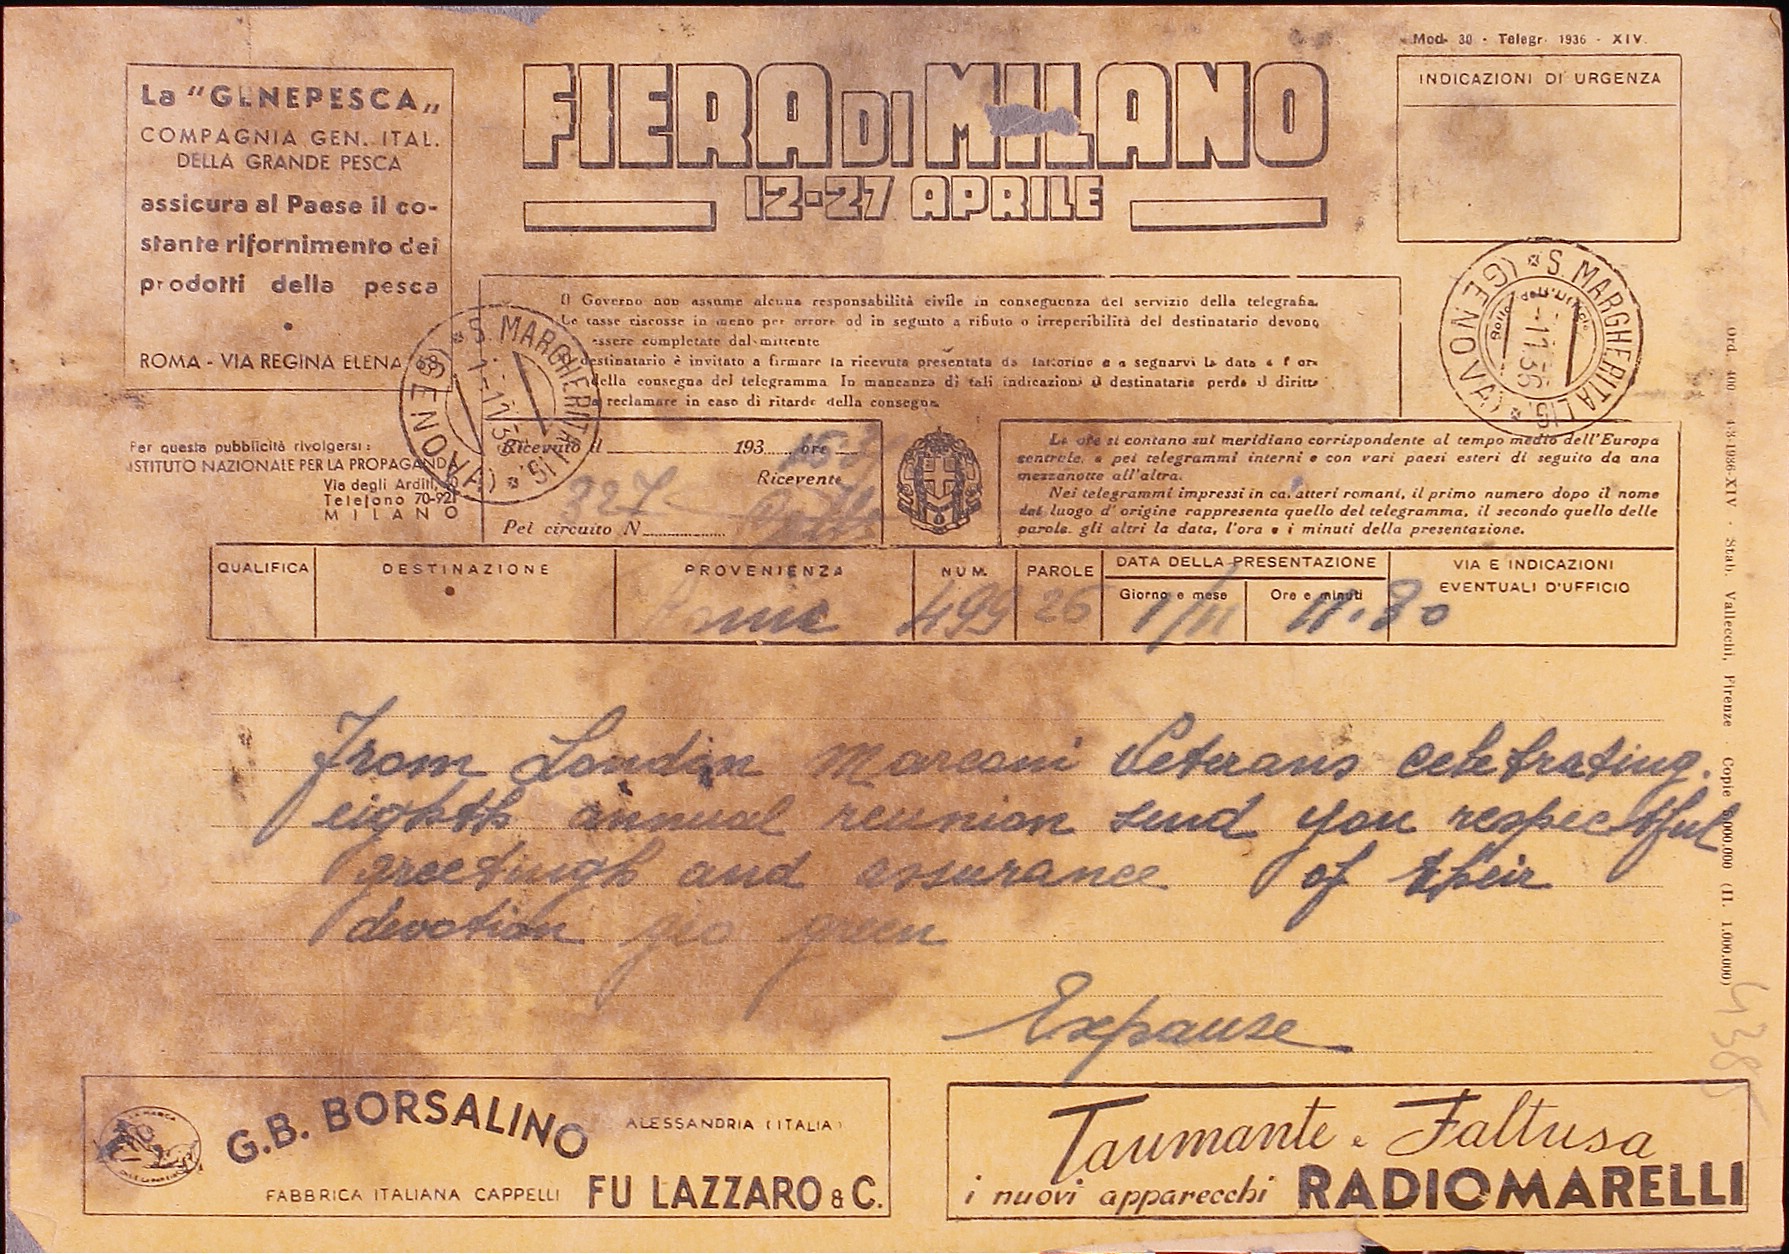 Mod. 30 - Telegr. 1936 - XIV.
La "GENEPESCA„
COMPAGNIA GEN. ITAL.
DELLA GRANDE PESCA
assicura al Paese il co-
stante rifornimento dei
prodotti della pesca
ROMA - VIA REGINA ELENA
FIERA DI MILANO
12-27 APRILE
INDICAZIONI DI URGENZA
S. MARGHERITA LIG. (GENOVA)
1-11 36
S. MARGHERITA LIG. (GENOVA)
1-11 36
Il Governo non assume alcuna responsabilità civile in conseguenza del servizio della telegrafia.
Le tasse riscosse in meno per errore od in seguito a rifiuto o irreperibilità del destinatario devono
essere completate dal mittente
destinatario è invitato a firmare la ricevuta presentata da fattorino e a segnarvi la data e l'ora
della consegna del telegramma In mancanza di tali indicazioni il destinatario perde il diritto
a reclamare in caso di ritardo della consegna
Per questa pubblicità rivolgersi:
ISTITUTO NAZIONALE PER LA PROPAGANDA
Via degli Arditi,
Telefono 70-921
MILANO
Ricevuto il 193 ore
Ricevente
327
Pel circuito N.
Le ore si contano sul meridiano corrispondente al tempo medio dell'Europa
centrale, e pei telegrammi interni e con vari paesi esteri di seguito da una
mezzanotte all'altra.
Nei telegrammi impressi in caratteri romani, il primo numero dopo il nome
del luogo d'origine rappresenta quello del telegramma, il secondo quello delle
parole, gli altri la data, l'ora e i minuti della presentazione.
QUALIFICA DESTINAZIONE PROVENIENZA NUM. PAROLE DATA DELLA PRESENTAZIONE VIA E INDICAZIONI
EVENTUALI D'UFFICIO
Giorno e mese Ore e minuti
Roma 499 26 1/11 11.30
From London Marconi Veterans celebrating
eighth annual reunion send you respectful
greetingh and assurance of their
devotion gio green
Expause
4385
G.B. BORSALINO ALESSANDRIA (ITALIA)
FABBRICA ITALIANA CAPPELLI FU LAZZARO & C.
Taumante e Faltusa
i nuovi apparecchi RADIOMARELLI
Ord. 400 4-3-1936-XIV - Stab. Vallecchi, Firenze - Copie 5.000.000 (II. 1.000.000)